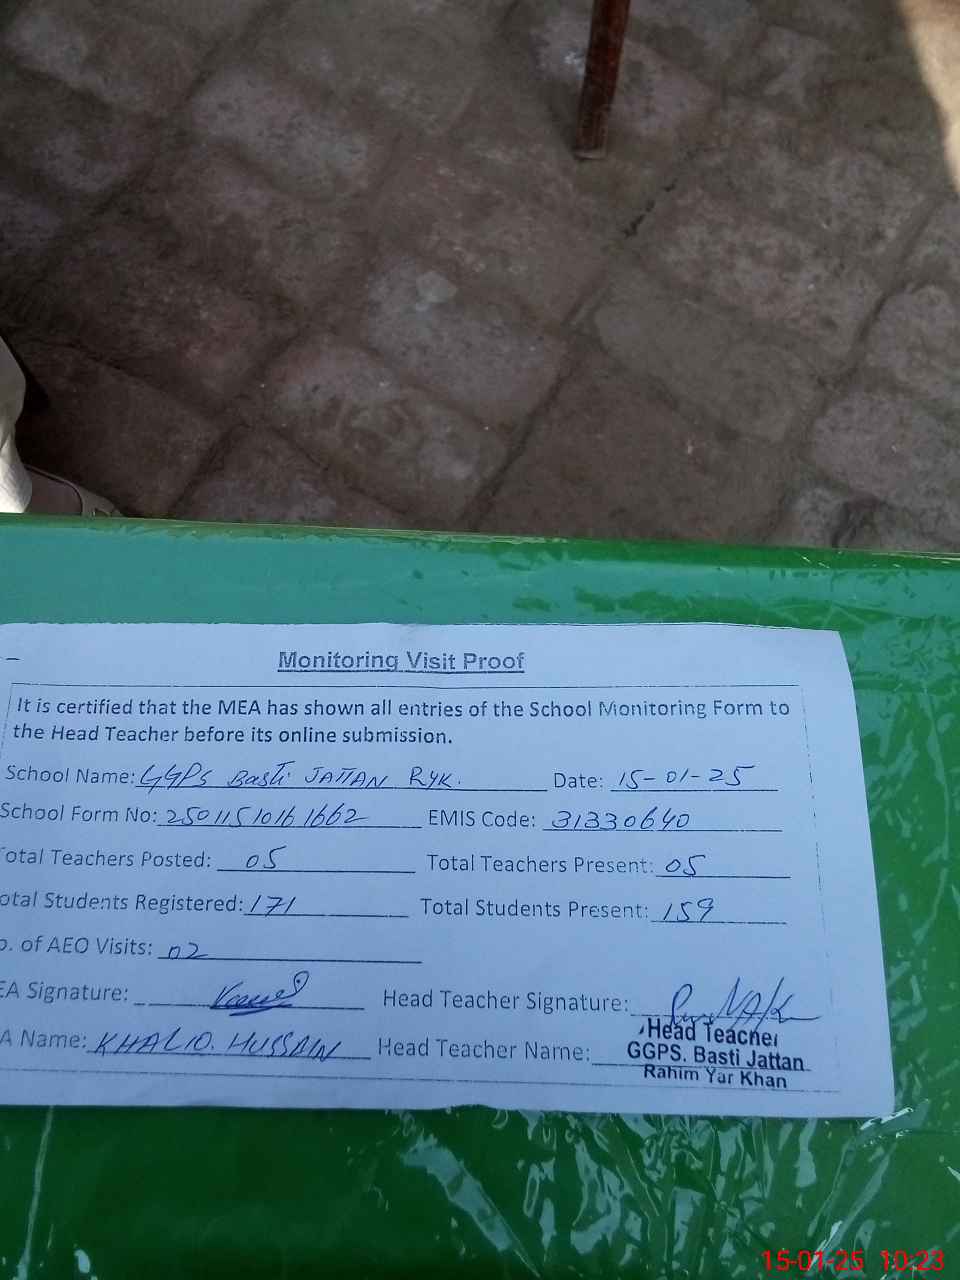 Monitoring Visit Proof
It is certified that the MEA has shown all entries of the School Monitoring Form to
the Head Teacher before its online submission.
School Name: GGPS Basti JATTAN RYK. Date: 15-01-25
School Form No: 2501151016 1662 EMIS Code: 31330640
otal Teachers Posted: 05 Total Teachers Present: 05
otal Students Registered: 171 Total Students Present: 159
o. of AEO Visits: 02
EA Signature: Head Teacher Signature:
A Name: KHALID. HUSSAIN Head Teacher Name:
Head Teacher
GGPS. Basti Jattan
Rahim Yar Khan
15-01-25 10:23